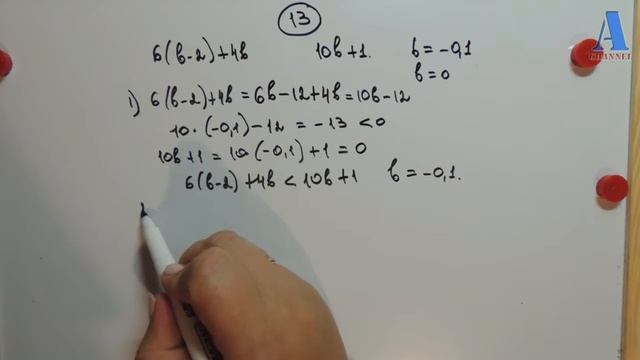 13
6(b-2)+4b 10b+1. b=-0,1
b=0
1) 6(b-2)+4b=6b-12+4b=10b-12
10·(-0,1)-12=-13<0
10b+1=10·(-0,1)+1=0
6(b-2)+4b<10b+1 b=-0,1.
A
CHANNEL